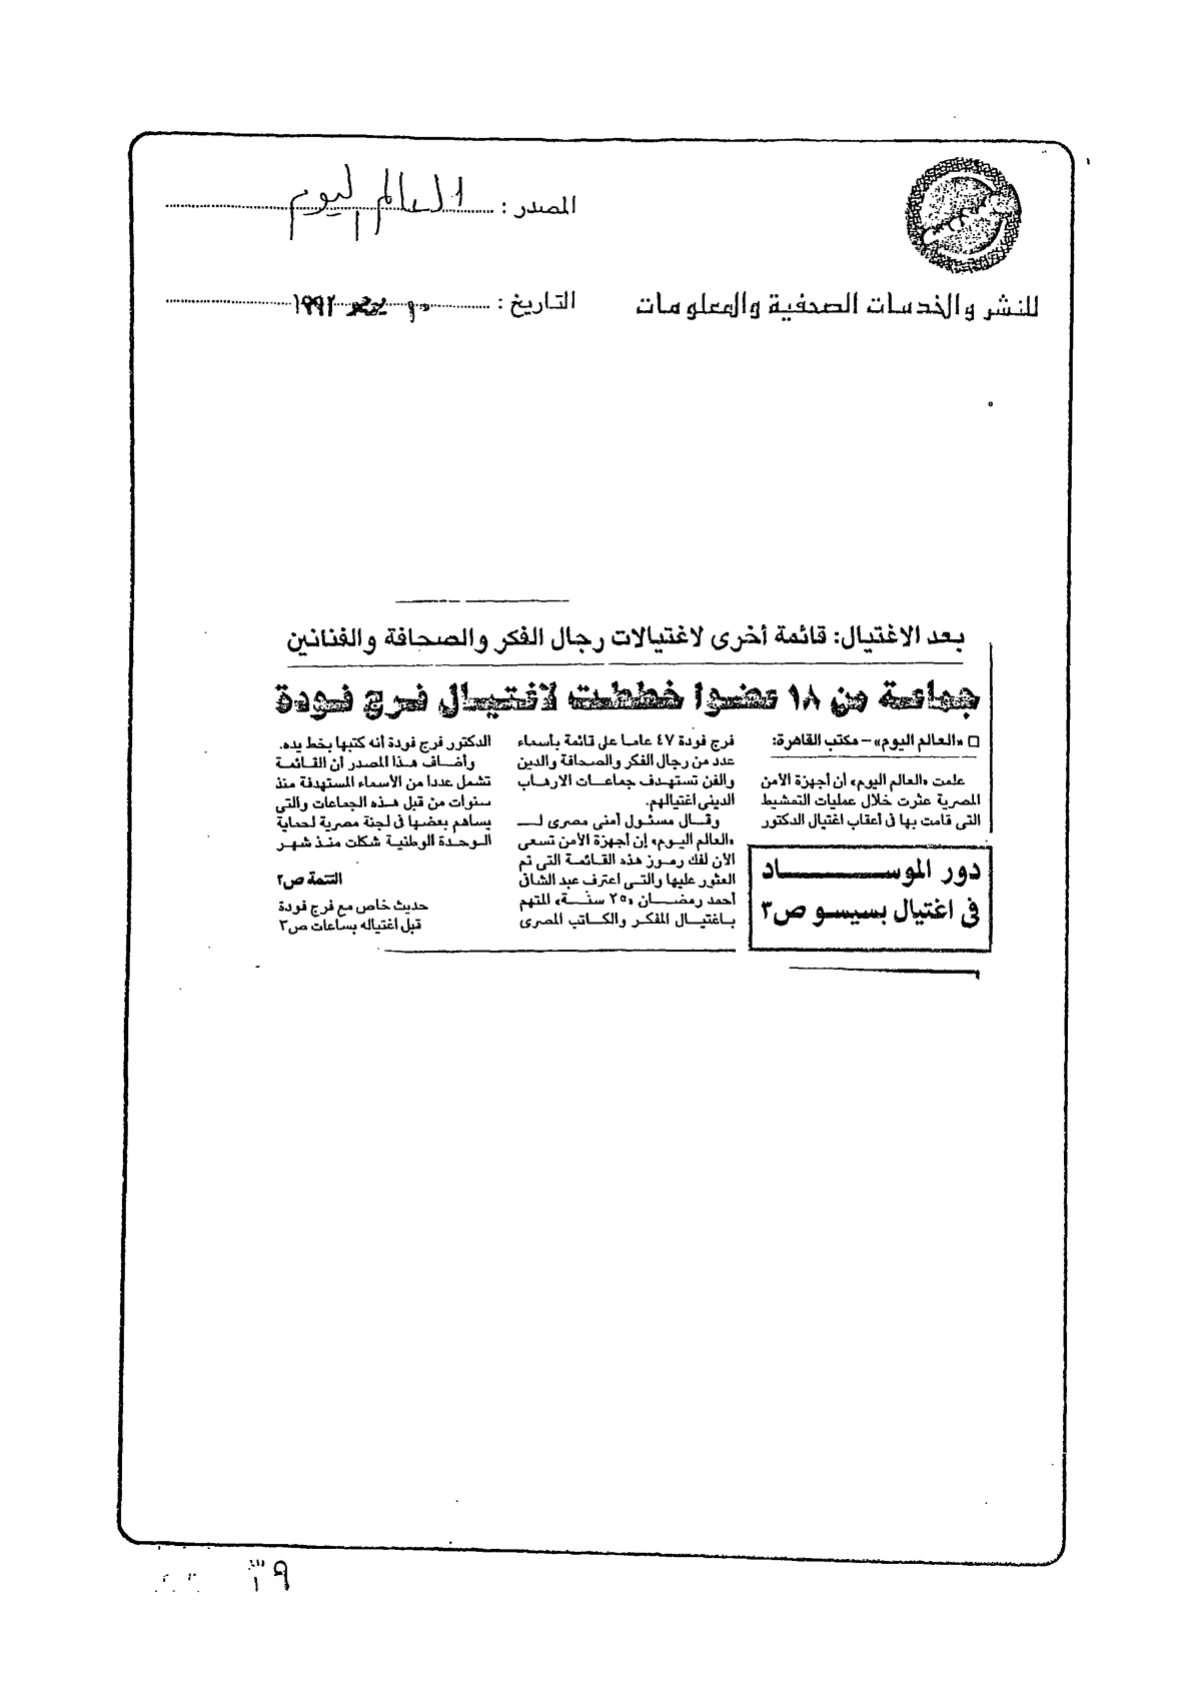 المصدر : العالم اليوم
للنشر والخدسات الصحفية والمعلومات
التاريخ : ١٠ يونيو ١٩٩٢
بعد الاغتيال: قائمة أخرى لاغتيالات رجال الفكر والصحافة والفنانين
جماعة من ١٨ عضوا خططت لاغتيال فرج فودة
□ «العالم اليوم» – مكتب القاهرة:
علمت «العالم اليوم» أن أجهزة الأمن
المصرية عثرت خلال عمليات التمشيط
التى قامت بها فى أعقاب اغتيال الدكتور
فرج فودة ٤٧ عاما على قائمة بأسماء
عدد من رجال الفكر والصحافة والدين
والفن تستهدف جماعات الارهاب
الدينى اغتيالهم.
وقال مسئول أمنى مصرى لـ
«العالم اليوم» إن أجهزة الأمن تسعى
الآن لفك رموز هذه القائمة التى تم
العثور عليها والتى اعترف عبد الشافى
أحمد رمضان «٢٥ سنة» المتهم
باغتيال المفكر والكاتب المصرى
الدكتور فرج فودة أنه كتبها بخط يده.
وأضاف هذا المصدر أن القائمة
تشمل عددا من الأسماء المستهدفة منذ
سنوات من قبل هذه الجماعات والتى
يساهم بعضها فى لجنة مصرية لحماية
الوحدة الوطنية شكلت منذ شهر
التتمة ص٢
حديث خاص مع فرج فودة
قبل اغتياله بساعات ص٣
دور الموساد
فى اغتيال بسيسو ص٣